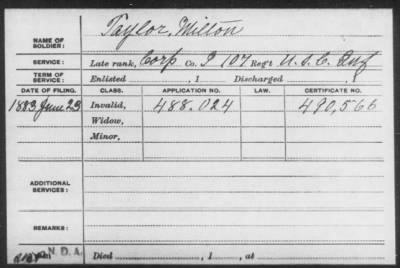 Taylor, Milton
NAME OF
SOLDIER:
SERVICE: Late rank, Corp Co. I 107 Reg't U.S.C. Inf
TERM OF
SERVICE: Enlisted , 1 Discharged , 1
DATE OF FILING. CLASS. APPLICATION NO. LAW. CERTIFICATE NO.
1883 June 23 Invalid, 488.024 490,566
Widow,
Minor,
ADDITIONAL
SERVICES:
REMARKS:
N.D.A. Died , 1 , at